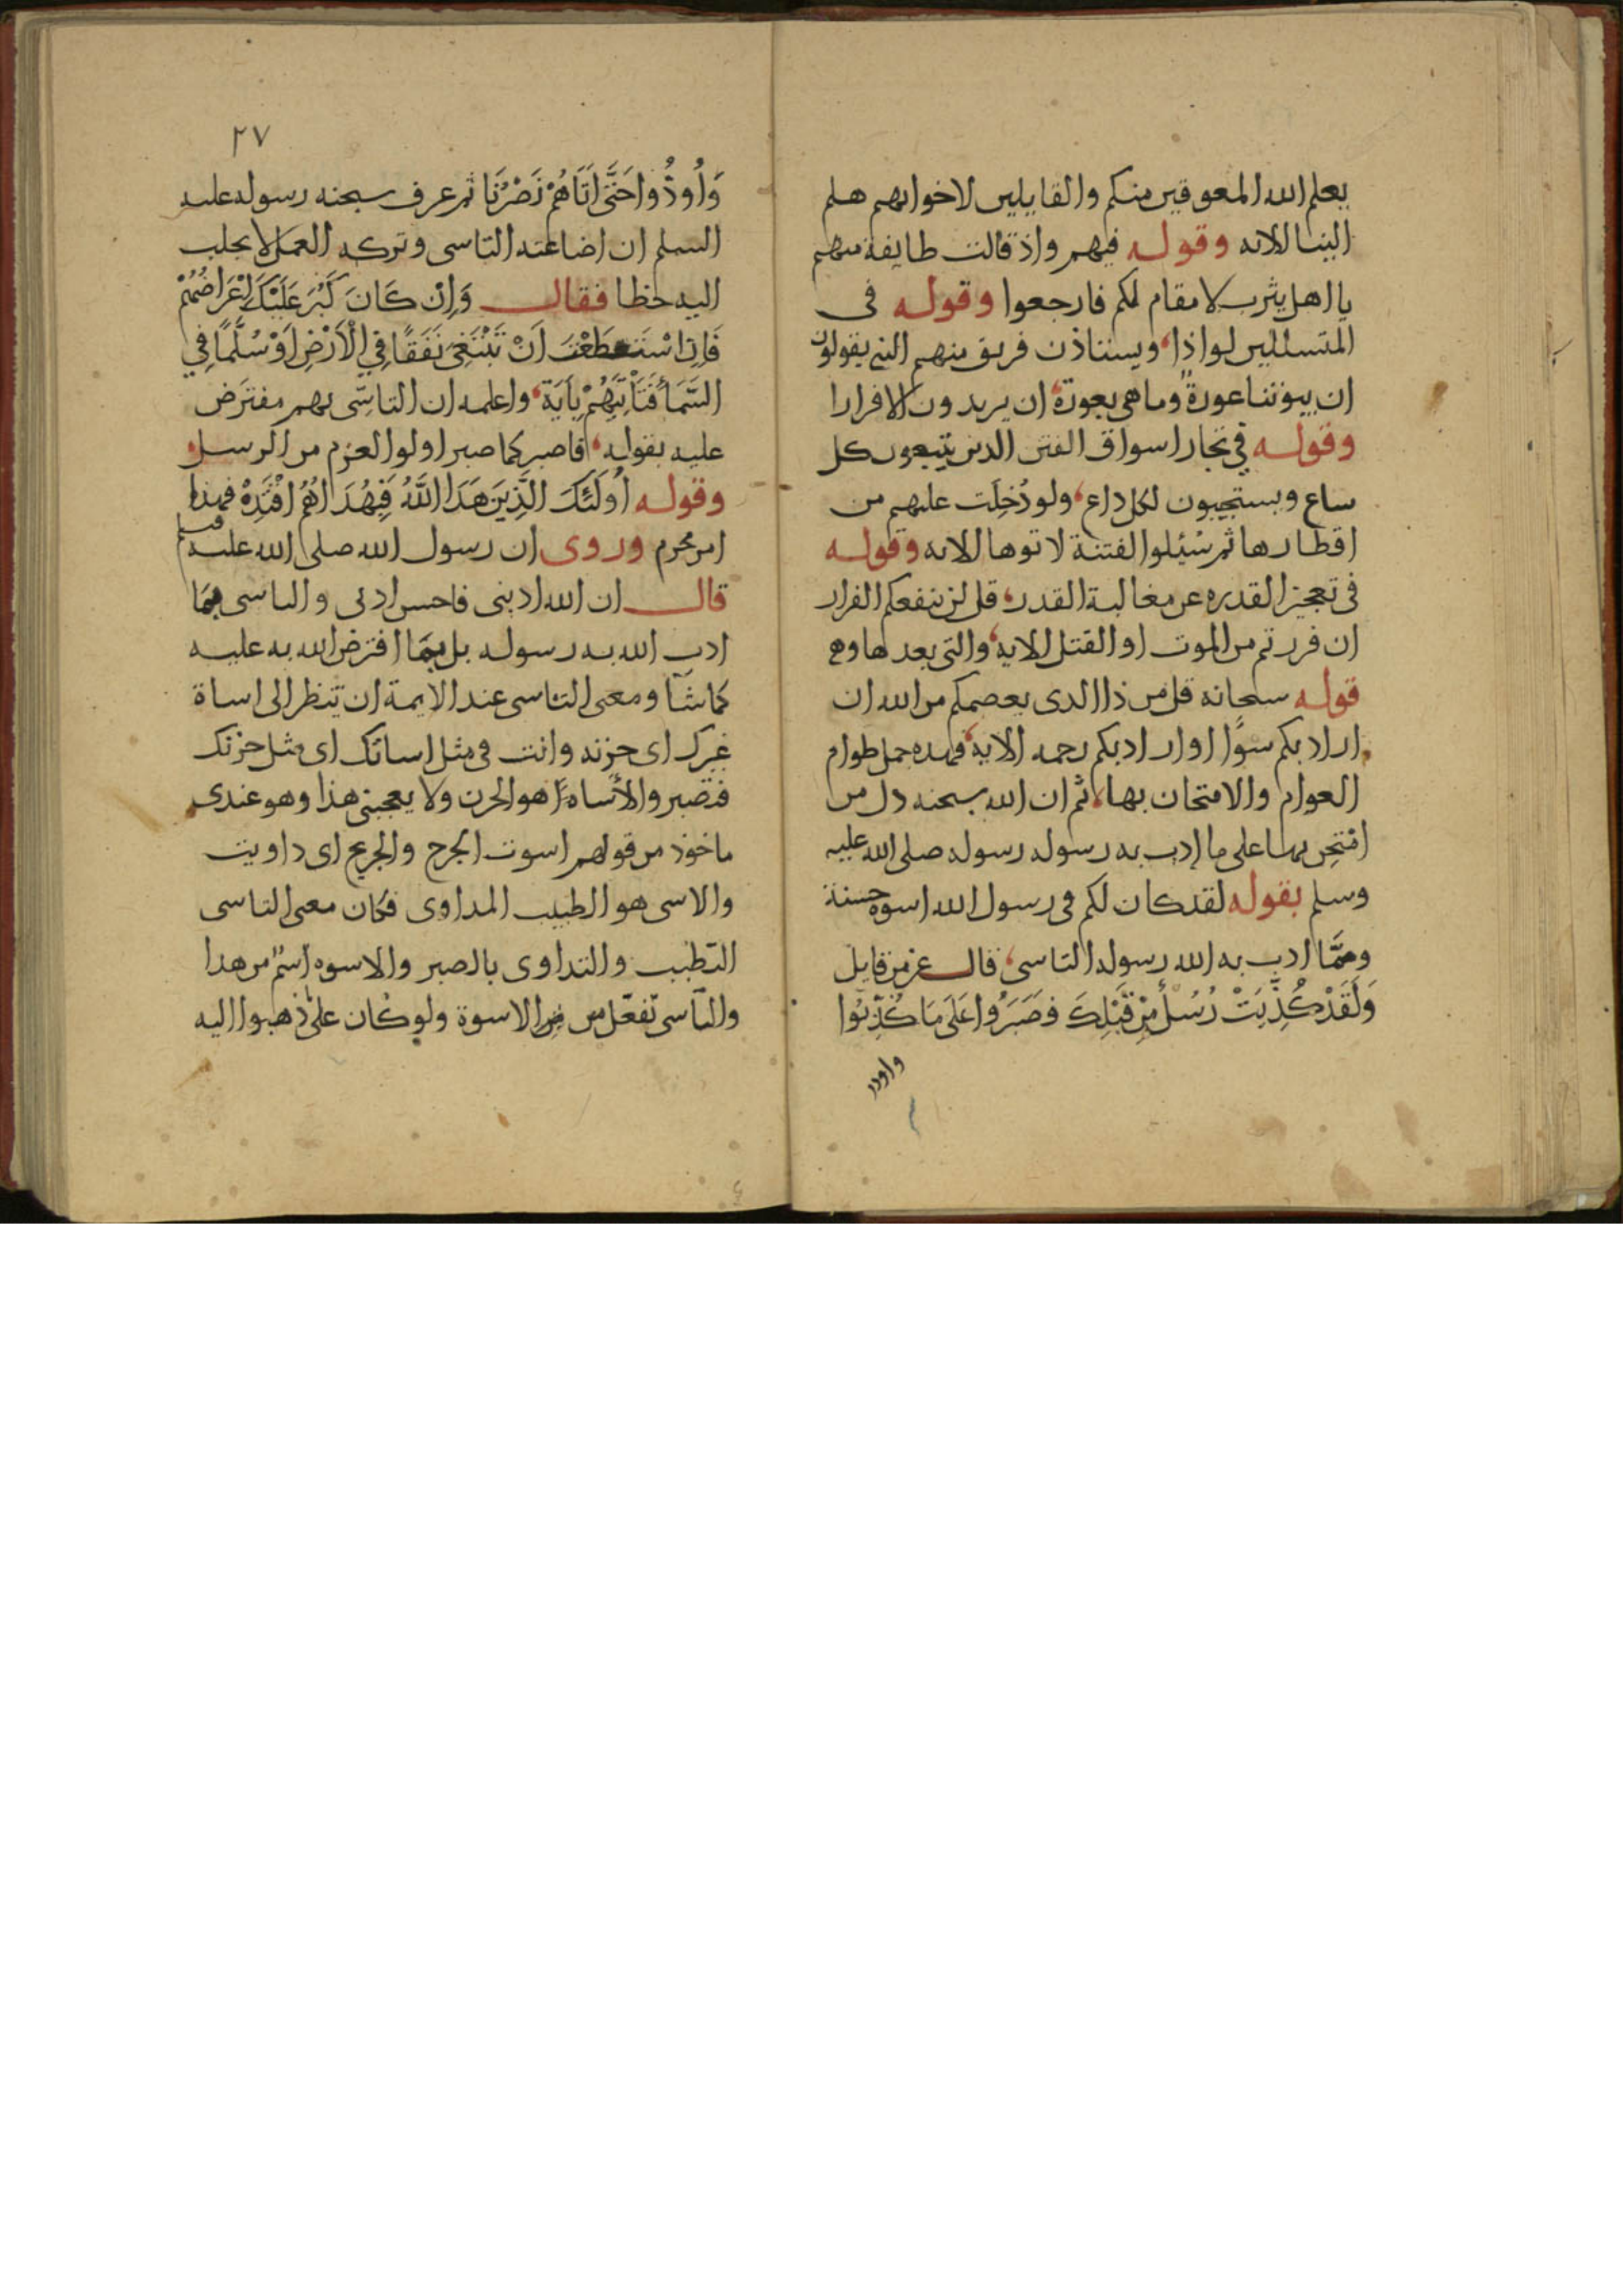 يعلم الله المعوقين منكم والقايلين لاخوانهم هلم
الينا الاية وقوله فيهم واذ قالت طايفة منهم
يا اهل يثرب لا مقام لكم فارجعوا وقوله فى
المتسللين لواذا، ويستاذن فريق منهم النبي يقولون
ان بيوتنا عورة وما هى بعورة، ان يريدون الا فرارا
وقوله في تجار اسواق الفتن الدين يتبعون كل
ساع ويستجيبون لكل داع، ولو دُخِلَت عليهم من
اقطارها ثم سُئِلوا الفتنة لاتوها الاية وقوله
فى تعجيز القدره عن مغالبة القدر، قل لن ينفعكم الفرار
ان فررتم من الموت او القتل الاية، والتى بعدها وهو
قوله سبحانه قل من ذا الدى يعصمكم من الله ان
اراد بكم سوًا او اراد بكم رحمه الاية، فهده جمل طوام
العوام والامتحان بها، ثم ان الله سبحنه دل من
امْتُحِن بها على ما ادب به رسوله رسوله صلى الله عليه
وسلم بقوله لقد كان لكم فى رسول الله اسوة حسنة
ومِمَّا ادب به الله رسوله التاسى، قال عز من قايل
وَلَقَدْ كُذِّبَتْ رُسُلٌ مِنْ قَبْلِكَ فَصَبَرُوا عَلَى مَا كُذِّبُوا
واودوا
٢٧
وَاُوذُوا حَتَّى اَتَاهُمْ نَصْرُنَا ثم عرف سبحنه رسوله عليه
السلم ان اضاعته التاسى وتركه العمل لا يجلب
اليه حظا فقال وَاِنْ كَانَ كَبُرَ عَلَيْكَ اِعْرَاضُهُمْ
فَاِنِ اسْتَطَعْتَ اَنْ تَبْتَغِيَ نَفَقًا فِي الْاَرْضِ اَوْ سُلَّمًا فِي
السَّمَاء فَتَأْتِيَهُمْ بِآيَة، واعلمه ان التاسّى بهم مفترَض
عليه بقوله، فاصبر كما صبر اولوا العزم من الرسل،
وقوله أُولَئِكَ الَّذِينَ هَدَا اللَّهُ فَبِهُدَاهُمُ اقْتَدِهْ فهذا
امر محرم وروى ان رسول الله صلى الله عليه وسلم
قال ان الله ادبنى فاحسن ادبى والتاسى مِمَّا
ادب الله به رسوله بل مِمَّا افترض الله به عليه
كما شآ ومعنى التاسى عند الايمة ان تنظر الى اساة
غيرك اى حزنه وانت فى مثل اساتك اى مثل حزنك
فتصبر والأساة هو الحزن ولا يعجبنى هذا وهو عندى
ماخوذ من قولهم اسوت الجرح والجريح اى داويت
والاسى هو الطبيب المداوى فكان معنى التاسى
التطبب والتداوى بالصبر والاسوه اسم من هدا
والتآسى تفعّل من الاسوة ولو كان على ما ذهبوا اليه